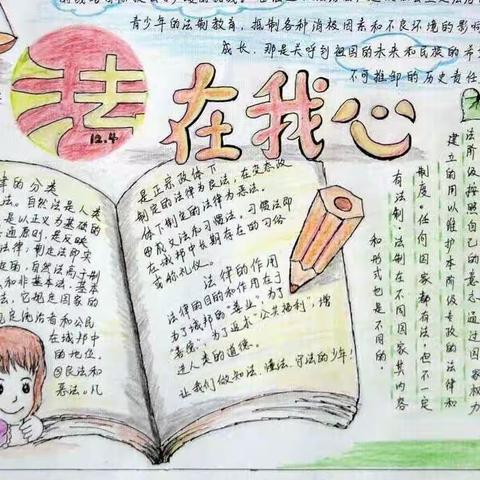 青少年的法制教育,抵制各种消极因素和不良环境的影响
成长,那是关呼到祖国的未来和民族的希
不可推卸的历史责任
法
12.4
在我心
律的分类
法。自然法是人类
是以正义为基础的
是反映
法律,制定法即实
定的。自然法高于制
和非基本法。基本
法,它规定国家的
规定统治者和公民
在城邦中
的地位。
④良法和
恶法。凡
是正宗政体下
制定的法律为良法,在变态政
体下制定的法律为恶法。
⑤成文法和习惯法。习惯法即
在城邦中长期存在的习俗
或者礼仪。
法律的作用
法律的目的和作用在于
为了城邦的“善业”,为了
“善德”,为了追求“公共福利”,增
进人类的道德。
让我们做知法、懂法、守法的少年!
法阶级按照自己的意志通过国家权力
建立的用以维护本阶级专政的法律和
制度。任何国家都有法,但不一定
有法制,法制在不同国家其内容
和形式也是不同的。